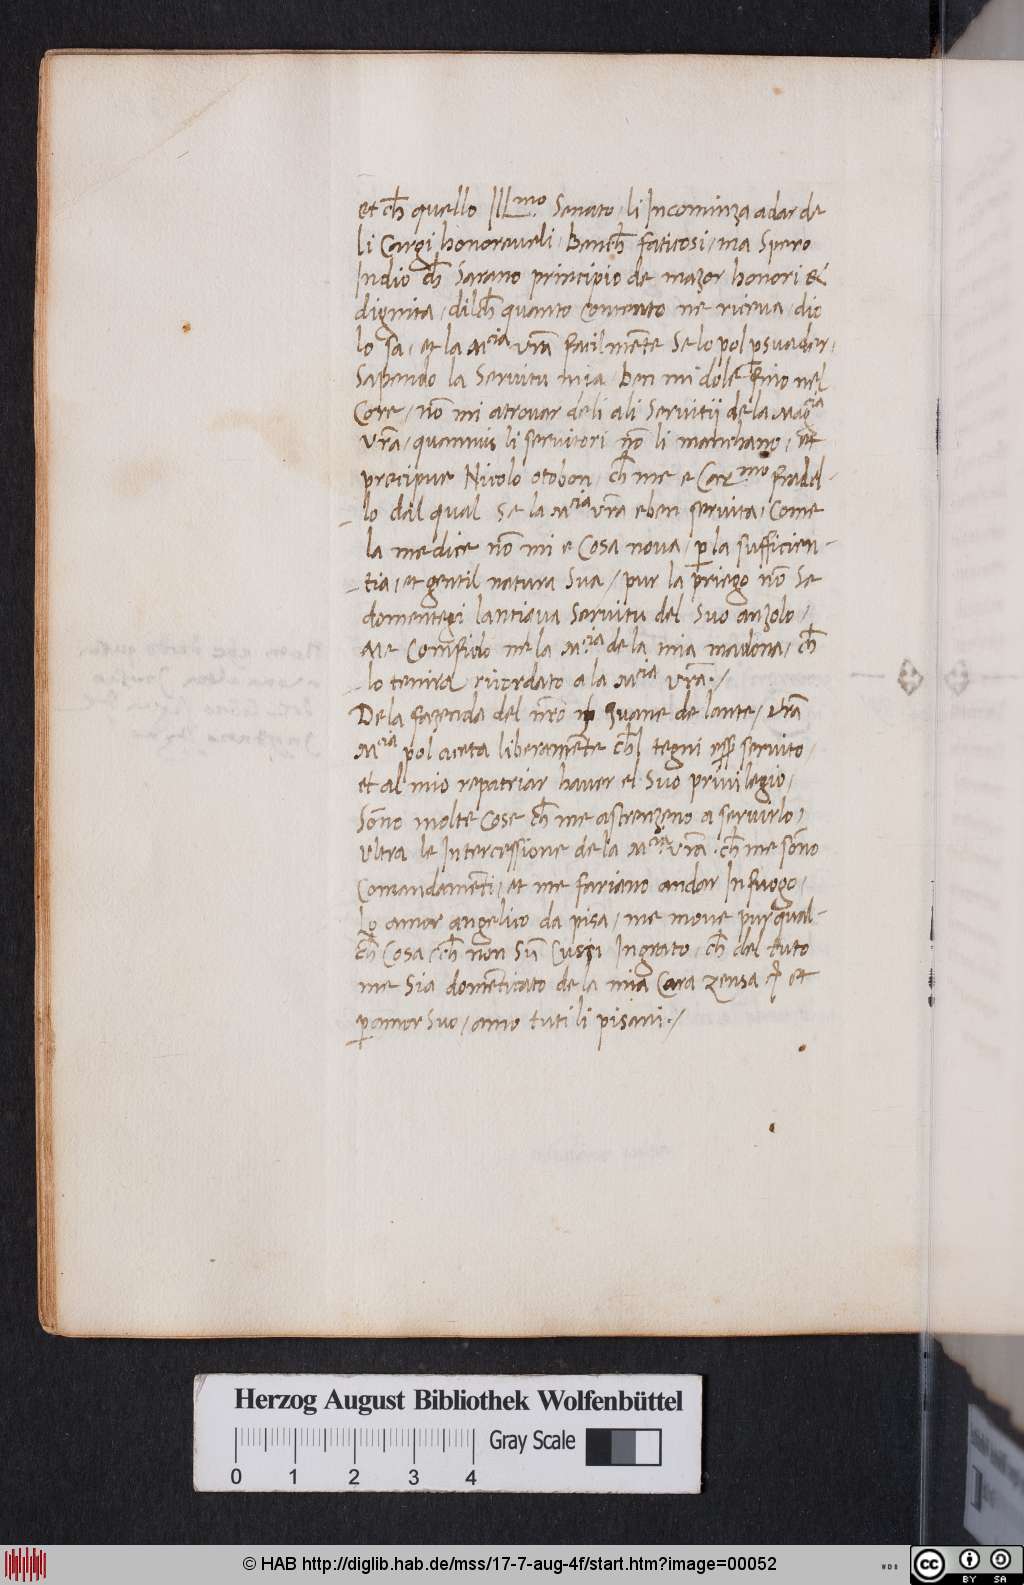 et ch̅ quello Ill.mo Senato, li Incominza adar de
li Cargi honoreueli, Bench̅ faticosi, ma Spero
Indio ch̅ Sarano principio de mazor honori &
dignita, dilch̅ quanto Contento ne riceua, dio
lo sa, et la M.cia vr̅a facilme̅te Se lo pol p̱suader,
Sapendo la Seruitu mia, Ben mi dole fino nel
Core, no̅ mi atrouar deli ali Seruitii de la Mag.cia
vr̅a, quamuis li seruitori no̅ li manchano, et
precipue Nicolo otobon, ch̅ me e Car.mo fradel-
lo dal qual Se la M.cia vr̅a e ben seruita, Come
la me dice no̅ mi e Cosa noua, p̱ la sufficien-
tia, et gentil natura Sua, pur la priego no̅ Se
domentegi lantiqua Seruitu del Suo anzolo,
Me Confido ne la M.cia de la mia madona, ch̅
lo tenira ricordato a la M.cia vr̅a./
De la fazenda del nr̅o Zuane de lante, vr̅a
M.cia pol aceta liberame̅te ch̅l tegni p̱ seruito,
et al mio repatriar hauer el Suo priuilegio,
So̅no molte Cose ch̅ me astrenzeno a seruirlo,
vltra le Intercessione de la M.cia vr̅a, ch̅ me so̅no
Comandame̅ti, et me fariano andar In fuogo,
Lo amor angelico da pisa, me moue pur qual-
ch̅ Cosa, ch̅ non Su̅ Cussi Ingrato, ch̅ del tuto
me Sia dome̅ticato de la mia Cara zensa et
p̱ amor Suo, amo tuti li pisani./
Herzog August Bibliothek Wolfenbüttel
Gray Scale
0 1 2 3 4
© HAB http://diglib.hab.de/mss/17-7-aug-4f/start.htm?image=00052
WDB
cc BY SA